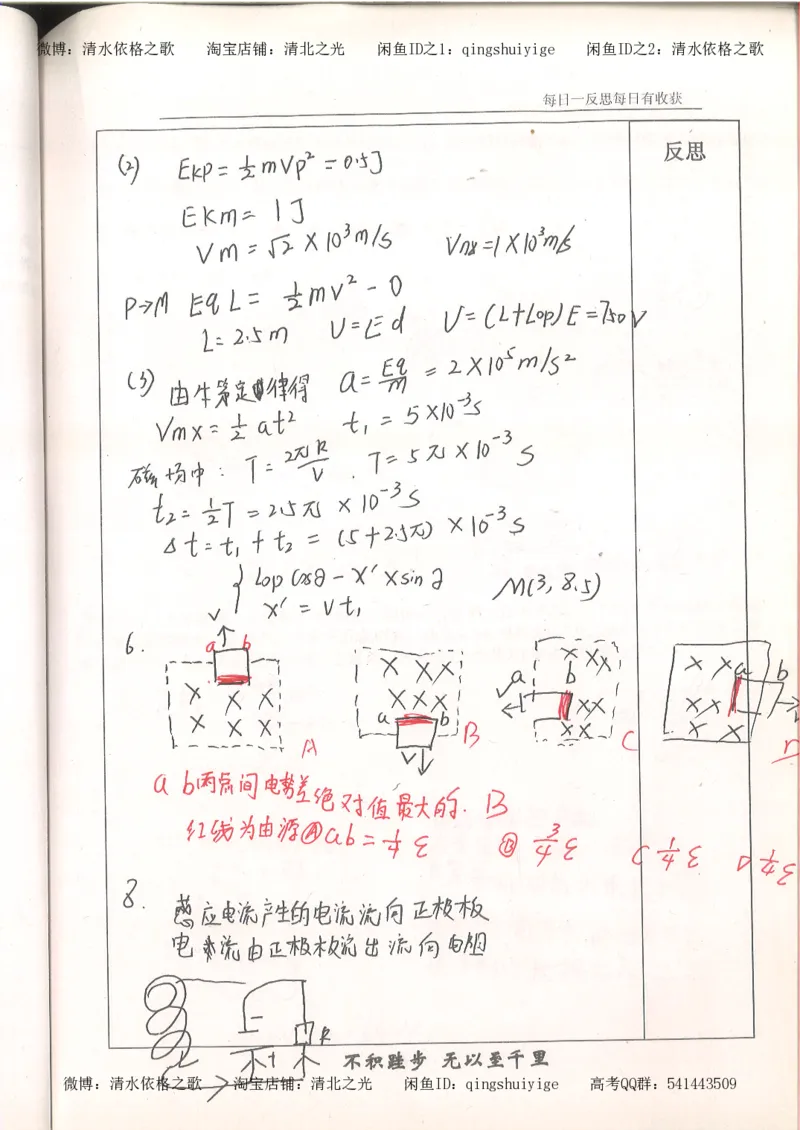 微博：清水依格之歌 淘宝店铺：清北之光 闲鱼ID之1：qingshuiyige 闲鱼ID之2：清水依格之歌
每日一反思每日有收获
反思
(2) EKP = ½mVp² = 0.5J
EKm = 1J
Vm = √2 × 10³m/s Vmx = 1×10³m/s
P→M EqL = ½mv² - 0
L = 2.5m U = Ed U = (L+Lop)E = 750V
(3) 由牛第定律得 a = Eq/m = 2×10⁵m/s²
Vmx = ½at² t₁ = 5×10⁻³s
磁场中： T = 2πR/V . T = 5π×10⁻³S
t₂ = ½T = 2.5π × 10⁻³S
Δt = t₁ + t₂ = (5+2.5π) × 10⁻³S
{ Lop Cos∂ - X′ X sin ∂ M(3, 8.5)
X′ = Vt₁
6.
v a b
× × ×
× × ×
A
× × ×
× × ×
a b
v
B
× × ×
v a b
× ×
× ×
C
× × a b
× ×
× ×
a b两点间电势差绝对值最大的. B
红线为电源 Ⓐ ab = ¼ε Ⓑ ¾ε C ¼ε D ¼ε
8.
感应电流产生的电流流向正极板
电流由正极板流出流向电阻
R
不积跬步 无以至千里
微博：清水依格之歌 淘宝店铺：清北之光 闲鱼ID：qingshuiyige 高考QQ群：541443509